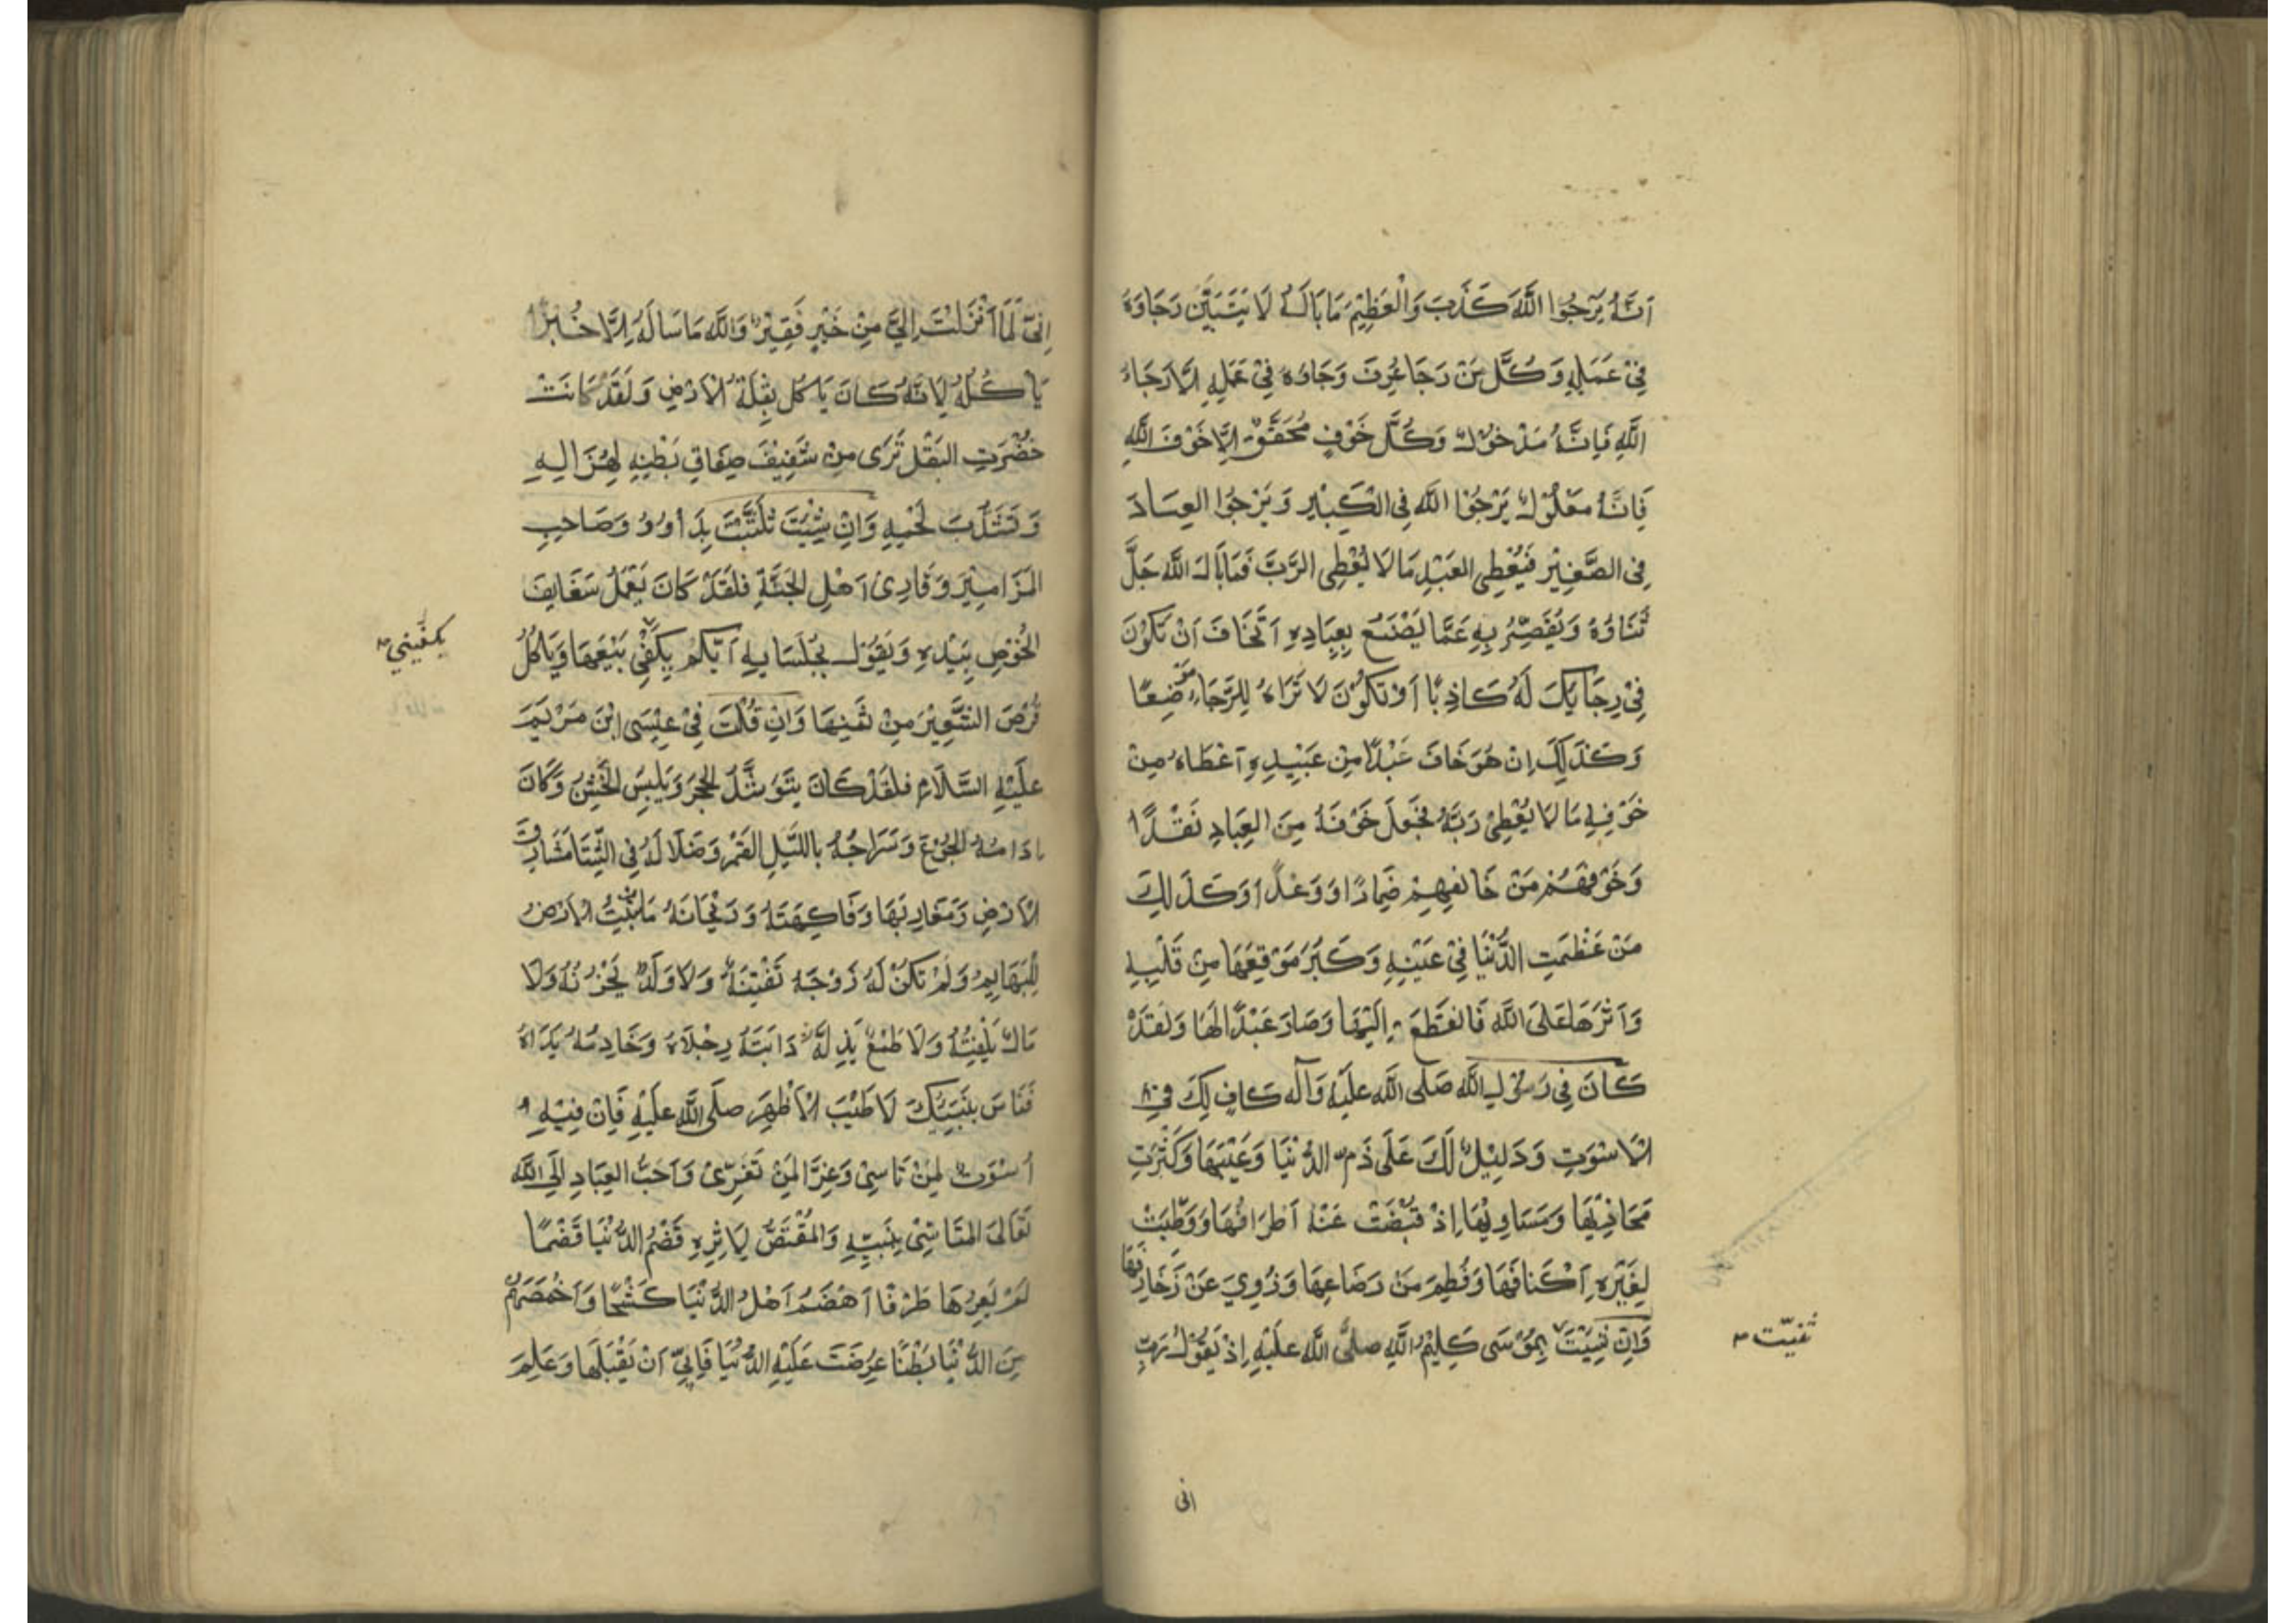 اَنَّهُ يَرْجُوا اللَّهَ كَذَبَ وَالْعَظِيْمِ مَا بَالَهُ لَا يَتَبَيَّنُ رَجَاوَهُ
فِيْ عَمَلِهِ وَكُلُّ مَنْ رَجَا عُرِفَ رَجَاوُهُ فِيْ عَمَلِهِ اِلَّا رَجَاءُ
اللَّهِ فَاِنَّهُ مَدْخُوْلٌ وَكُلُّ خَوْفٍ مُحَقَّقٌ اِلَّا خَوْفَ اللَّهِ
فَاِنَّهُ مَعْلُوْلٌ يَرْجُوْا اللَّهَ فِى الْكَبِيْرِ وَيَرْجُوا العِبَادَ
فِى الصَّغِيْرِ فَيُعْطِى العَبْدِ مَا لَا يُعْطِى الرَّبَّ فَمَا بَالُ اللَّهِ جَلَّ
ثَنَاؤُهُ وَيُقَصِّرُ بِهِ عَمَّا يَصْنَعُ بِعِبَادِهِ اَتَخَافُ اَنْ تَكُوْنَ
فِيْ رِجَايِكَ لَهُ كَاذِبًا اَوْ تَكُوْنَ لَا تَرَاهُ لِلرَّجَاءِ مَوْضِعًا
وَكَذَلِكَ اِنْ هُوَ خَافَ عَبْدًا مِنْ عَبْيِدِهِ اَعْطَاهُ مِنْ
خَوْفِهِ مَا لَا يُعْطِيْ رَبَّهُ فَجَعَلَ خَوْفَهُ مِنَ العِبَادِ نَقْدًا
وَخَوْفَهُمْ مَنْ خَالِقِهِمْ ضِمَارًا وَوَعْدًا وَكَذَلِكَ
مَنْ عَظُمَتِ الدُّنْيَا فِيْ عَيْنِهِ وَكَبُرَ مَوْقِعُهَا مِنْ قَلْبِهِ
وَآثَرَهَا عَلَى اللَّهِ فَانقَطَعَ اِلَيْهَا وَصَارَ عَبْدًا لَهَا وَلَقَدْ
كَانَ فِى رَسُوْلِ اللَّهِ صَلَّى اللَّهِ عَلَيْهِ وَآلِه كَافٍ لَكَ فِي
الْاُسْوَتِ وَدَلِيْلٌ لَكَ عَلَى ذَمِّ الدُّنْيَا وَعَيْبِهَا وَكَثْرَتِ
مَخَازِيْهَا وَمَسَاوِيْهَا اِذْ قُبِضَتْ عَنْهُ اَطْرَافُهَا وَوُطِّيَتْ
لِغَيْرِهِ اَكْنَافُهَا وَفُطِمَ مَنْ رَضَاعِهَا وَزُوِيَ عَنْ زَخَارِفِهَا
وَاِنْ ثَنِيْتَ بِمُوْسَى كَلِيْمِ اللَّهِ صَلَّى اللَّه عَلَيْهِ اِذْ يَقُوْلُ رَبِّ
ثنيّت
انى
اِنِّىْ لِمَا اَنْزَلْتَ اِلَيَّ مِنْ خَيْرٍ فَقِيْرٌ وَاللَّهِ مَا سَالَهُ اِلَّا خُبْزًا
يَاكُلُهُ لِاَنَّهُ كَانَ يَاكُلُ بَقْلَةَ الْاَرْضِ وَلَقَدْ كَانَتْ
خُضْرَتِ البَقْلِ تَرَى مِنْ شَفِيْفِ صِفَاقِ بَطْنِهِ لِهُزَالِهِ
وَتَشَذُّبَ لَحْمِهِ وَاِنْ شِيْتَ ثَلَّثْتَ بِدَاوُوُدَ صَاحِبِ
المَزَامِيْرِ وَقَارِئ اَهْلِ الجَنَّةِ فَلَقَدْ كَانَ يَعْمَلُ سَفَايِفَ
الخُوْصِ بِيَدِهِ وَيَقُوْلُ لِجُلَسَايِهِ اَيُّكُمْ يَكْفِيْ بَيْعَهَا وَيَاكُلُ
يكفيني
قُرْصَ الشَّعِيْرِ مِنْ ثَمَنِهَا وَاِنْ قُلْتَ فِيْ عِيْسَى ابْنَ مَرْيَمَ
عَلَيْهِ السَّلَام فَلَقَدْ كَانَ يَتَوَسَّدُ الحَجَرَ وَيَلْبِسُ الخَشِنَ وَكَانَ
اِدَامُهُ الجُوْعَ وَسَرَاجُهُ بِاللَّيْلِ القَمَرَ وَضَلَالَهُ فِى الشِّتَا مَشَارِقَ
الْاَرْضِ وَمَغَارِبَهَا وَفَاكِهَتَهُ وَرَيْحَانَهُ مَا تُنْبِتُ الْاَرْضُ
لِلْبَهَايِمِ وَلَمْ تَكُنْ لَهُ زَوْجَهٌ تَفْتِنَهُ وَلَا وَلَدٌ يَحْزُنُهُ وَلَا
مَالٌ يَلْفِتُهُ وَلَا طَمَعٌ يَذِلَّهُ دَابَّتَهُ رِجْلَاهُ وَخَادِمُهُ يَدَاهُ
فَتَاسَّ بِنَبِيِّكَ لَا طْيَبَ الْاَطْهَرَ صَلَّى اللَّه عَلَيْهِ فَاِنْ فِيْهِ
اُسْوَتٌ لِمَنْ تَاسَّىْ وَعِزًّا لِمَنْ تَعَزّىْ وَاَحَبُّ العِبَادِ اِلَى اللَّه
تَعَالَى المُتَاسِّىْ بِنَبِيِّهِ وَالمُقْتَصُّ لِاَثِرِهِ قَضْمُ الدُّنْيَا قَضْمًا
لَمْ يُعِرْهَا طَرْفًا اَهْضَمُ اَهْلِ الدُّنْيَا كَشْحًا وَاَخْمَصَهُمْ
مِنَ الدُّنْيَا بَطْنًا عُرِضَتْ عَلَيْهِ الدُّنْيَا فَاَبىّ اَنْ يَقْبَلَهَا وَعَلِمَ